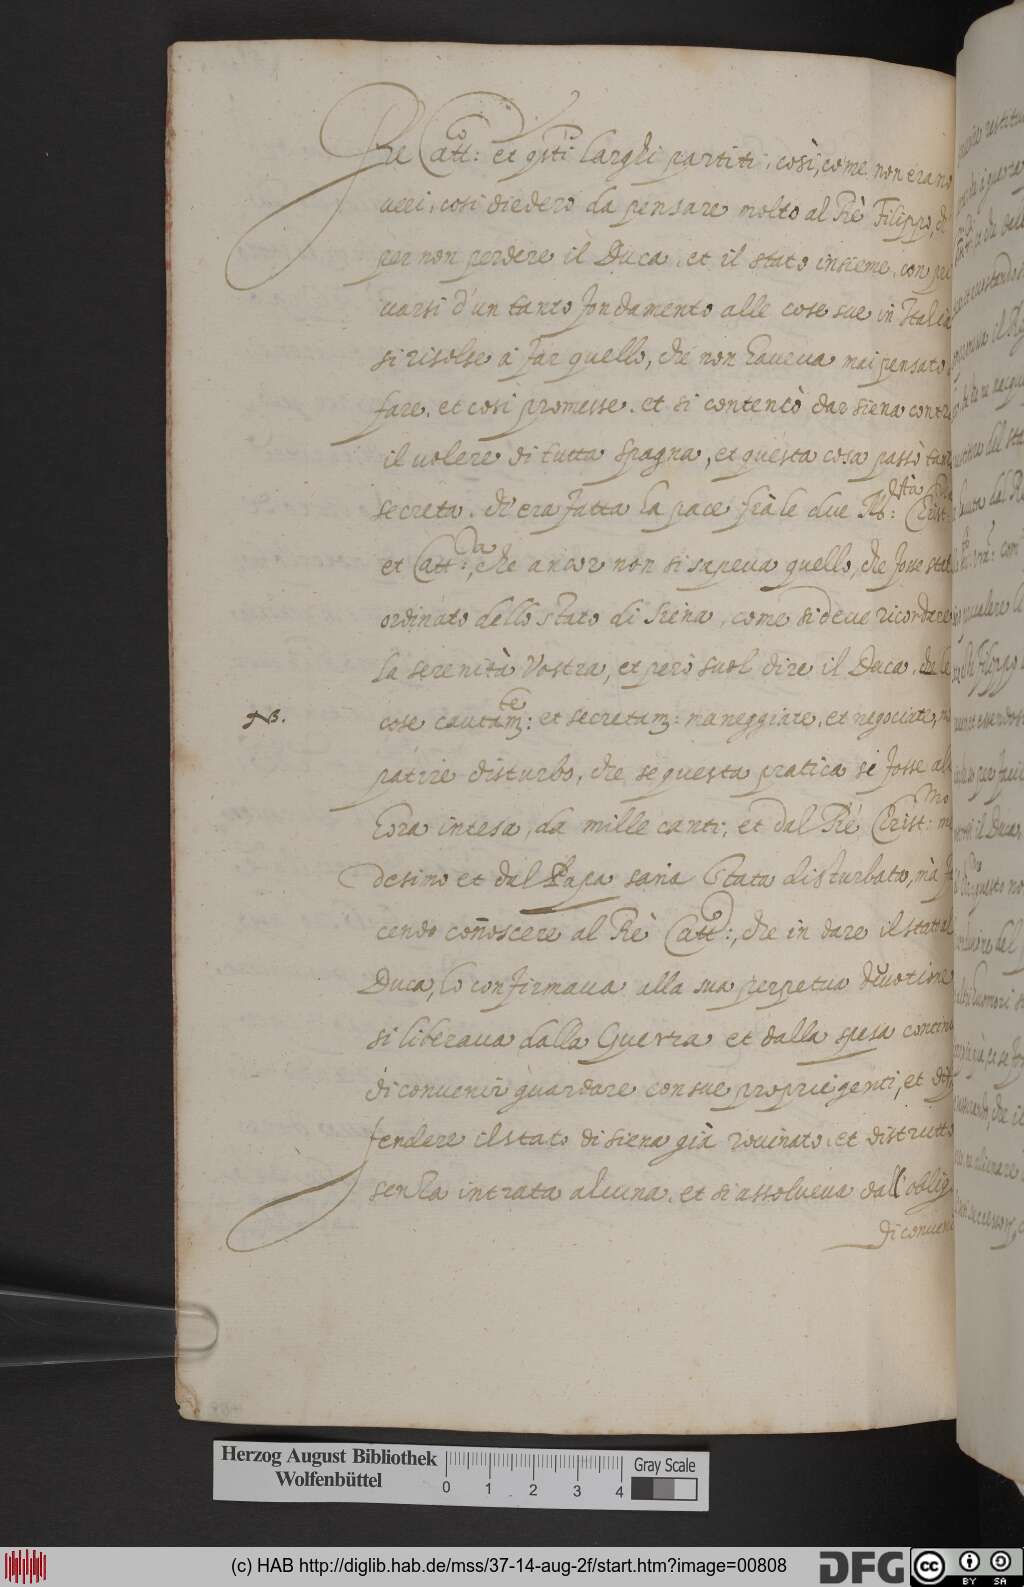 Rè Catt:co et q̃sti larghi partiti, così, come non erano
veri, così diedero da pensare molto al Rè Filippo, di
per non perdere il Duca, et il stato insieme, con pri
varsi d'un tanto fondamento alle cose sue in Italia
si risolse à far quello, che non haveva mai pensato
fare, et così promesse, et si contentò dar Siena contra
il volere di tutta Spagna, et questa cosa passò tanto
secreta, ch'era fatta la pace frà le due M: Crist:
et Catt:ca, che ancor non si sapeva quello, che fosse stato
ordinato dello stato di Siena, come si deve ricordare
la serenità Vostra, et però suol dire il Duca, che le
NB.
cose cautam:te et secretam: maneggiate, et negociate,
patire disturbo, che se questa pratica si fosse all
hora intesa, da mille canti, et dal Rè Crist:mo me
desimo et dal Papa saria stata disturbata, mà fa
cendo conñoscere al Rè Catt:co, che in dare il stato al
Duca, lo confirmava alla sua perpetua devotione
si liberava dalla Guerra et dalla spesa contin
di convenir guardare con sue proprie genti, et dif
fendere il stato di Siena già rovinato, et distrutto
senza intrata alcuna, et si assolveva dall'oblig
di conveni
Herzog August Bibliothek
Wolfenbüttel
0 1 2 3 4
Gray Scale
(c) HAB http://diglib.hab.de/mss/37-14-aug-2f/start.htm?image=00808
DFG
cc BY SA